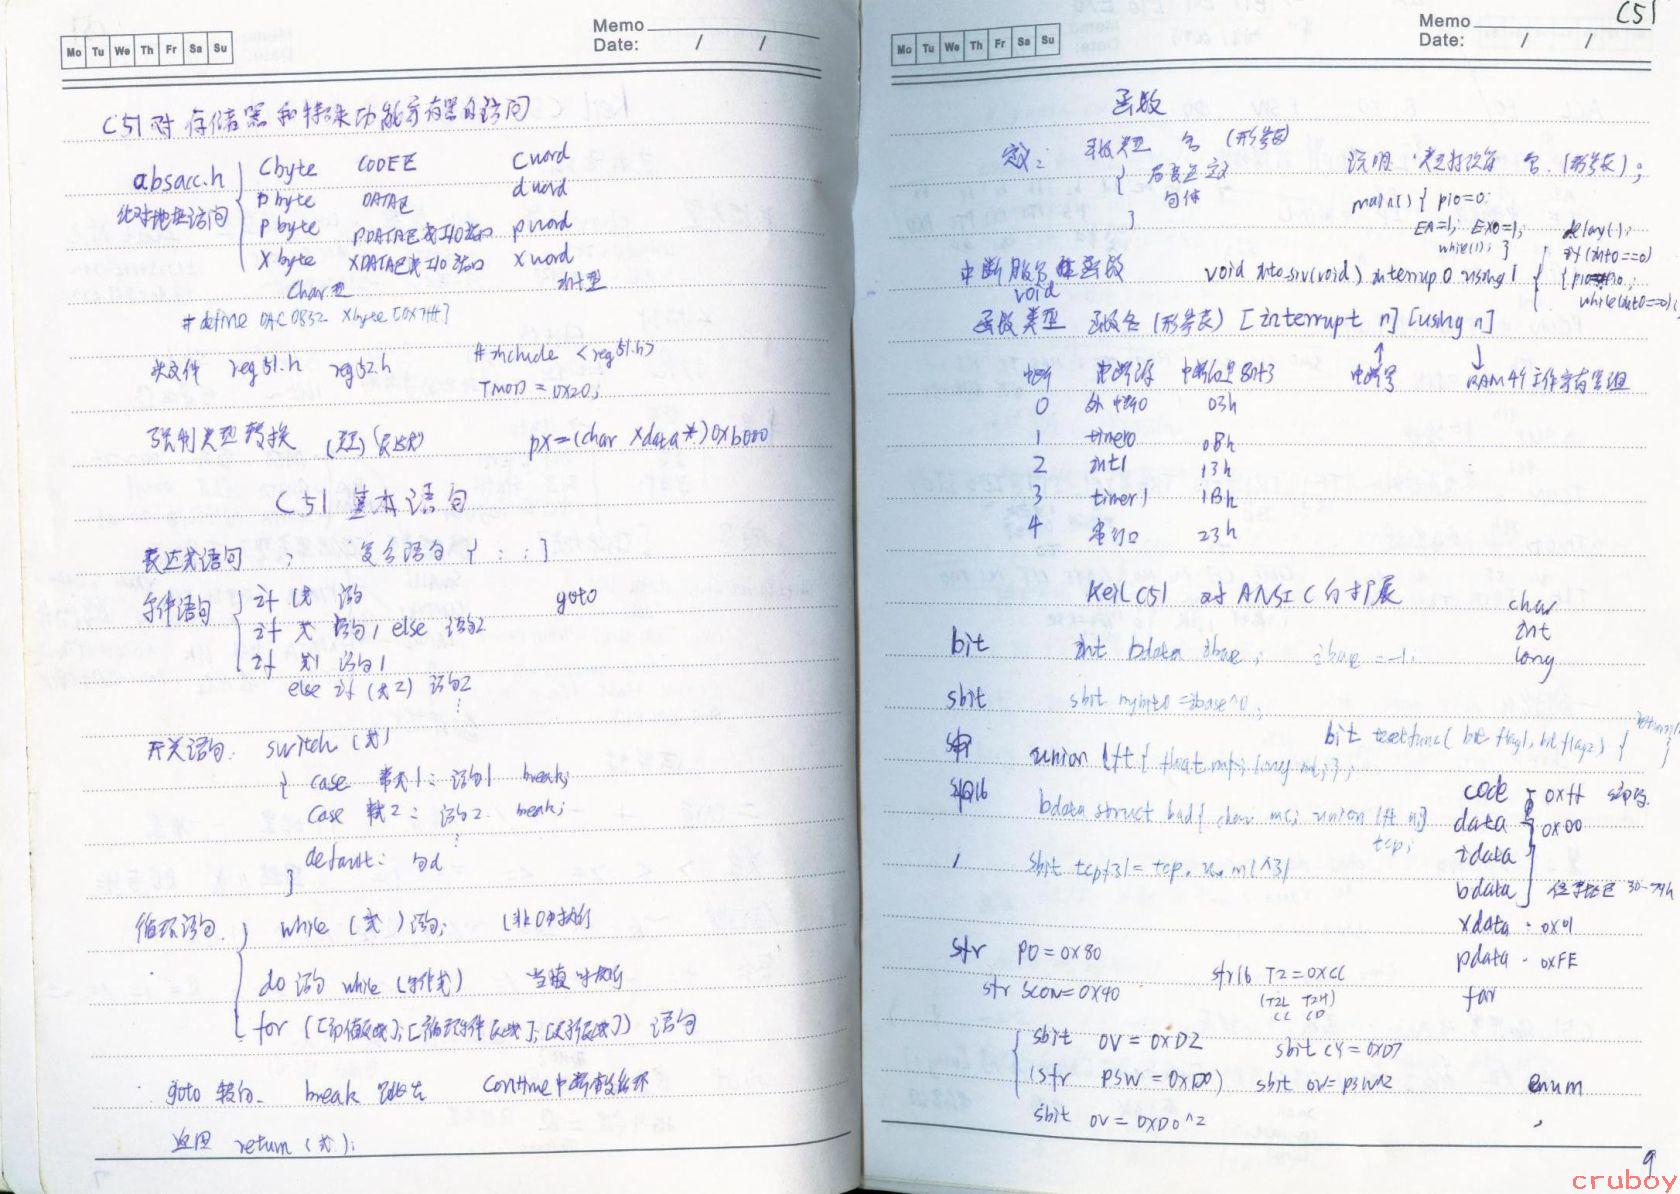 Mo Tu We Th Fr Sa Su
Memo
Date: / /
C51对存储器和特殊功能寄存器的访问
absacc.h
绝对地址访问
Cbyte CODE区 Cword
Dbyte DATA区 dword
Pbyte PDATA区或I/O端口 pword
Xbyte XDATA区或I/O端口 xword
Char型 int型
#define DAC0832 Xbyte[0x7ff]
头文件 reg51.h reg52.h #include <reg51.h>
TMOD=0x20;
强制类型转换 (类型)(表达式) px=(char xdata*)0xb000
C51 基本语句
表达式语句 ; 复合语句 { : : }
条件语句 if (式) 语句 goto
if 式 语句1 else 语句2
if 式1 语句1
else if (式2) 语句2
开关语句. switch (式)
{ case 常式1: 语句1 break;
case 常式2: 语句2. break;
default: 句d
}
循环语句. while (式) 语句; (非0时执行
do 语句 while (条件式)
for ([初值表达式];[循环条件表达式];[更新表达式]) 语句
goto 转向. break 跳出 continue中断本次循环
返回 return (式);
Mo Tu We Th Fr Sa Su
Memo C51
Date: / /
函数
定义: 函数类型 名 (形参表)
{ 局变量定义
句体
}
说明. 类型标识符 名.(形参表);
main() { p10=0;
EA=1; EX0=1;
while(1); }
delay();
if(int0==0)
while(int0==0);
中断服务函数 void int0srv(void) interrup 0 using 1
void
函数类型 函数名 (形参表) [interrupt n] [using n]
中断 中断源 中断向量8n+3 中断号 RAM 4个工作寄存器组
0 外中断0 03h
1 timer0 0Bh
2 int1 13h
3 timer1 1Bh
4 串行口 23h
Keil C51 对 ANSI C 的扩展
char
int
long
bit int bdata ibase; ibase=-1;
sbit sbit mybit0=ibase^0;
bit testfunc( bit flag1, bit flag2) {
sfr union lft { float mf; long ml; };
sfr16 bdata struct bad{ char mc; union lft u;}
tcp;
code 0xff
data 0x00
idata
bdata
xdata 0x01
pdata 0xFE
far
sfr P0=0x80
sfr SCON=0x90
sfr16 T2=0xCC
(T2L T2H)
CC CD
sbit OV=0xD2 sbit CY=0xD7
(sfr PSW=0xD0) sbit OV=PSW^2 enum
sbit OV=0xD0^2
9
cruboy